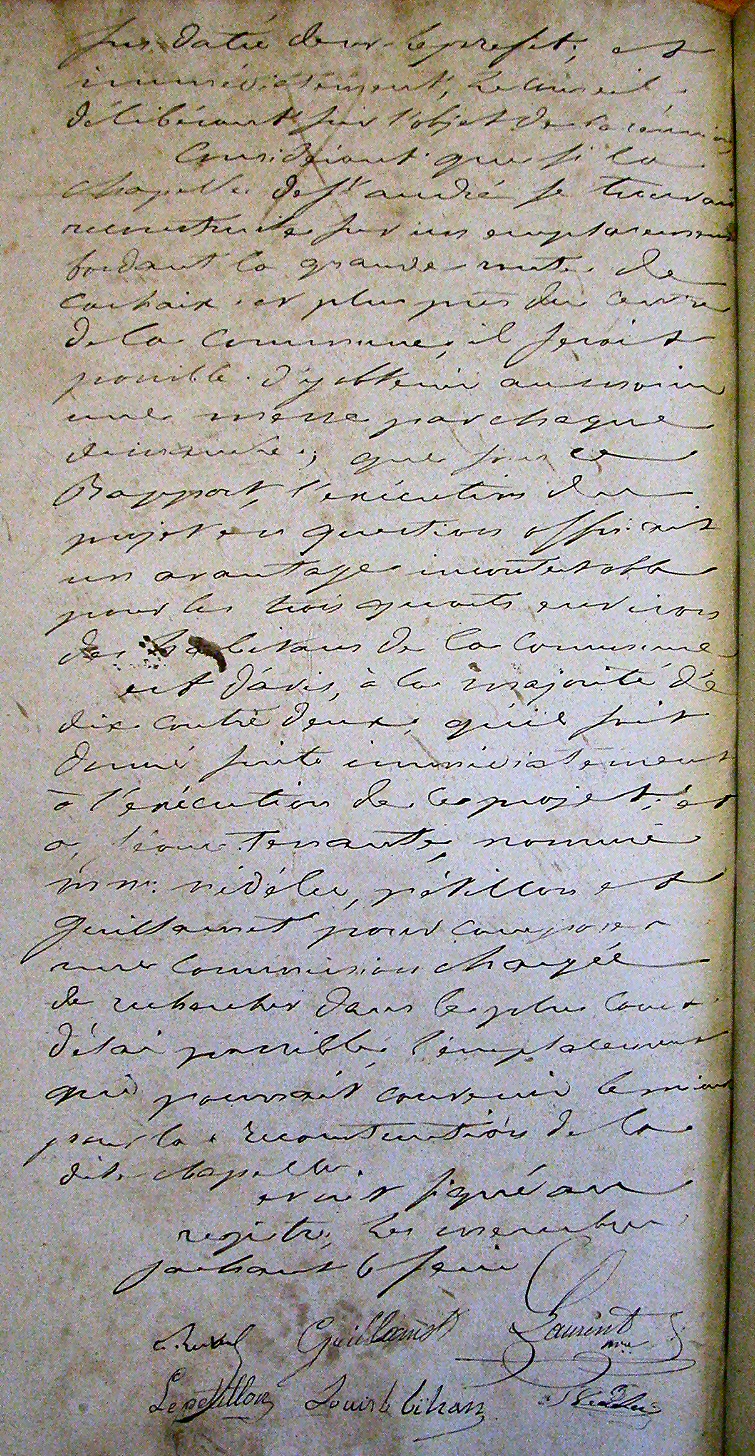 sus daté de mr. le prefet; et
immédiatement, le conseil
délibérant sur l'objet de sa réunion
Considérant que si la
chapelle de St andré se trouvait
reconstruite sur un emplacement
bordant la grande route de
carhaix et plus près du centre
de la commune, il serait
possible d'y obtenir au moins
une messe par chaque
dimanche; que sous ce
Rapport, l'exécution du
projet en question offrirait
un avantage incontestable
pour les trois quarts environ
des habitans de la commune
est d'avis, à la majorité de
dix contre deux, qu'il soit
donné suite immédiatement
à l'exécution de ce projet; et
a, séance tenante, nommé
mm. nédélec, pétillon et
Guillamot pour composer
une commission chargée
de rechercher dans le plus court
délai possible, l'emplacement
qui pourrait convenir le mieux
pour la reconstruction de la
dite chapelle.
et ont signé au
registre, les membres
sachant le faire
Guillamot Laurent
Lepetillon Louis le bihan